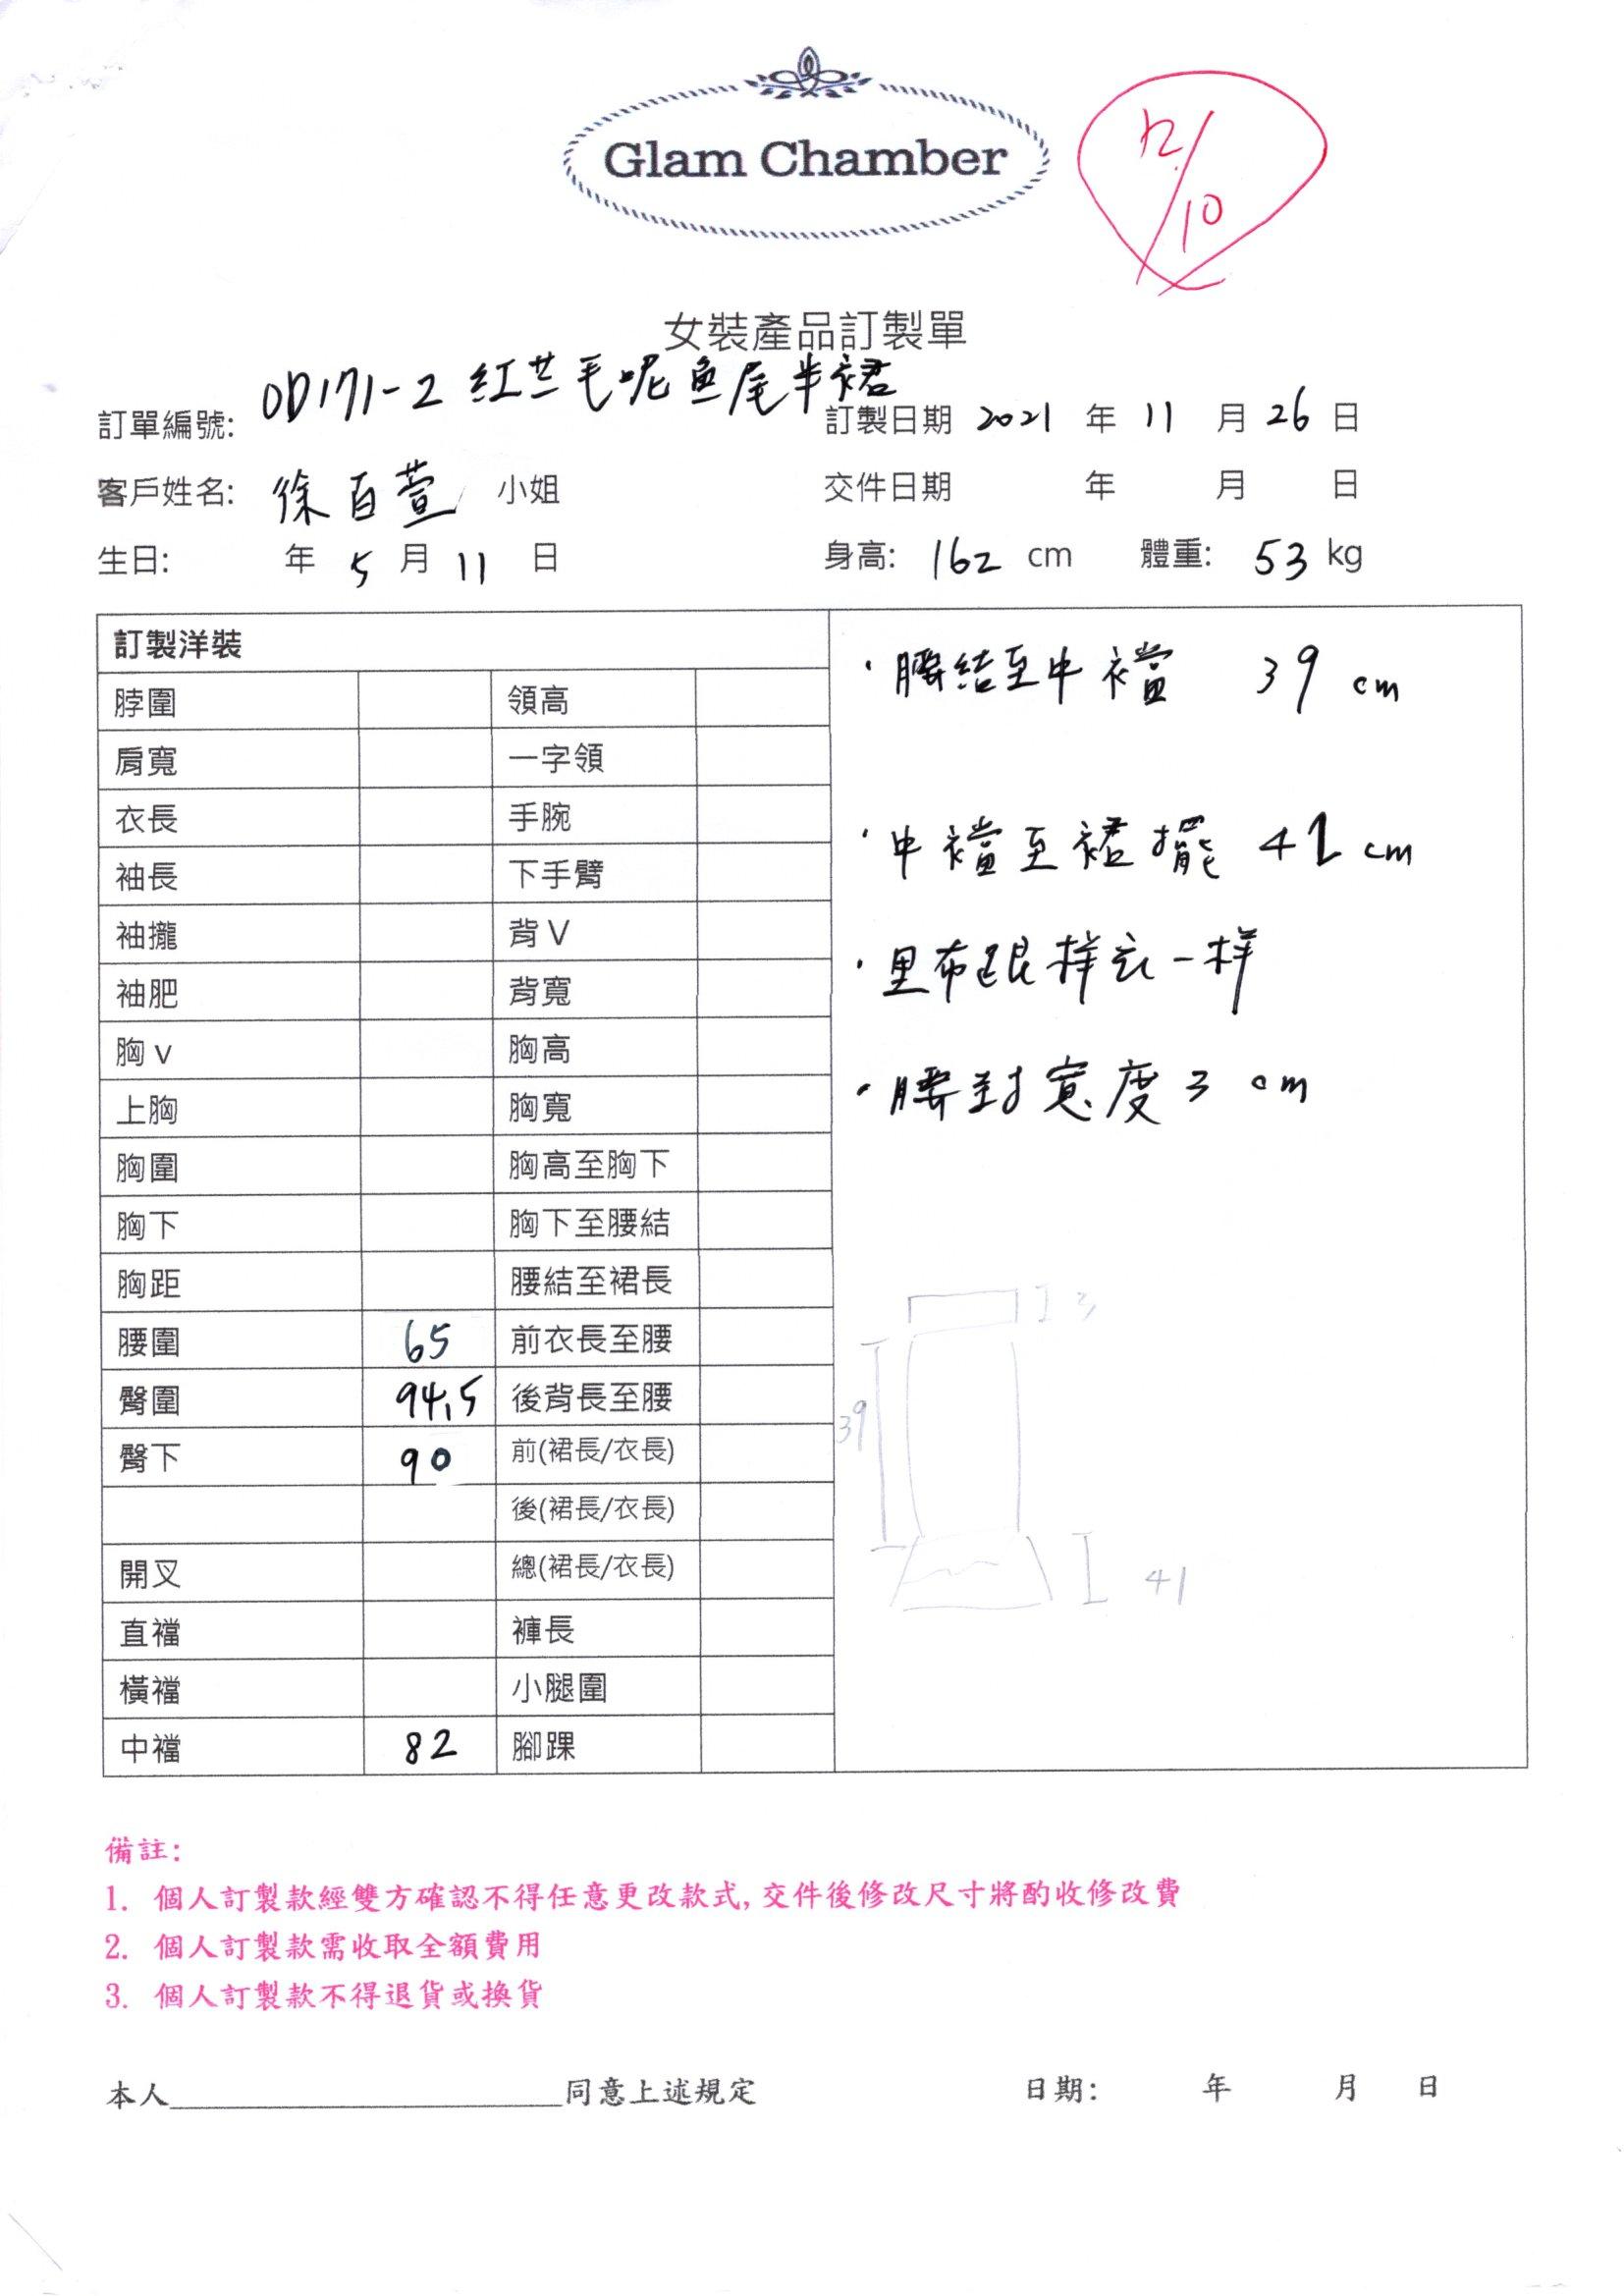 Glam Chamber
12/10
女裝產品訂製單
訂單編號: OD171-2 紅 毛呢魚尾半裙 訂製日期 2021 年 11 月 26 日
客戶姓名: 徐百萱 小姐 交件日期 年 月 日
生日: 年 5 月 11 日 身高: 162 cm 體重: 53 kg
訂製洋裝
脖圍 領高
肩寬 一字領
衣長 手腕
袖長 下手臂
袖攏 背 V
袖肥 背寬
胸 v 胸高
上胸 胸寬
胸圍 胸高至胸下
胸下 胸下至腰結
胸距 腰結至裙長
腰圍 65 前衣長至腰
臀圍 94.5 後背長至腰
臀下 90 前(裙長/衣長)
後(裙長/衣長)
開叉 總(裙長/衣長)
直襠 褲長
橫襠 小腿圍
中襠 82 腳踝
·腰結至中襠 39 cm
·中襠至裙擺 41 cm
·里布跟样衣一样
·腰封寬度 3 cm
3
39
41
備註:
1. 個人訂製款經雙方確認不得任意更改款式, 交件後修改尺寸將酌收修改費
2. 個人訂製款需收取全額費用
3. 個人訂製款不得退貨或換貨
本人____________________同意上述規定 日期: 年 月 日